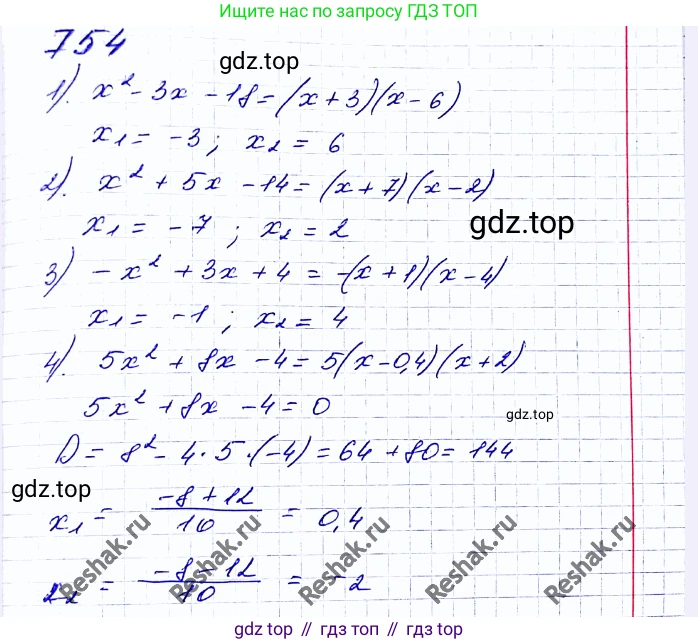 Ищите нас по запросу ГДЗ ТОП
754
gdz.top
1). x² - 3x - 18 = (x + 3)(x - 6)
x₁ = -3; x₂ = 6
2). x² + 5x - 14 = (x + 7)(x - 2)
x₁ = -7; x₂ = 2
gdz.top
3) -x² + 3x + 4 = -(x + 1)(x - 4)
x₁ = -1; x₂ = 4
4). 5x² + 8x - 4 = 5(x - 0,4)(x + 2)
5x² + 8x - 4 = 0
gdz.top
D = 8² - 4·5·(-4) = 64 + 80 = 144
gdz.top
x₁ = (-8 + 12)/10 = 0,4
x₂ = (-8 - 12)/10 = -2
Reshak.ru Reshak.ru Reshak.ru Reshak.ru
gdz.top // гдз топ // gdz.top